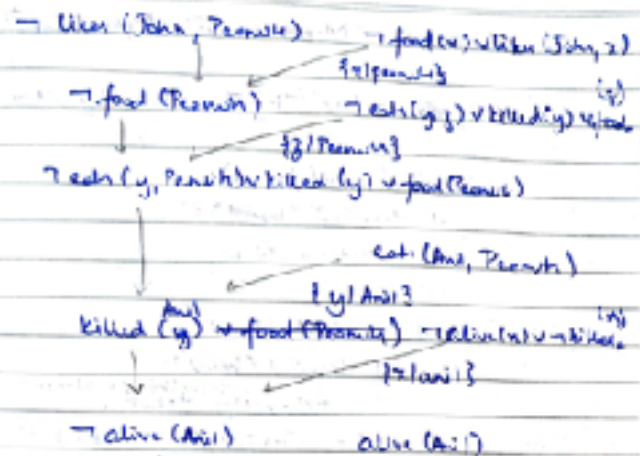 ¬ likes (John, Peanuts) ¬ food(x) ∨ likes (John, x)
{x/peanuts}
¬ food (Peanuts) ¬ eats(y, z) ∨ killed(y) ∨ food (z)
{z/Peanuts}
¬ eats (y, Peanuts) ∨ killed (y) ∨ food (Peanuts)
eats (Anil, Peanuts)
{y/Anil}
killed (y) Anil ∨ food (Peanuts) ¬ alive(x) ∨ ¬ killed (x)
{x/anil}
¬ alive (Anil) alive (Anil)